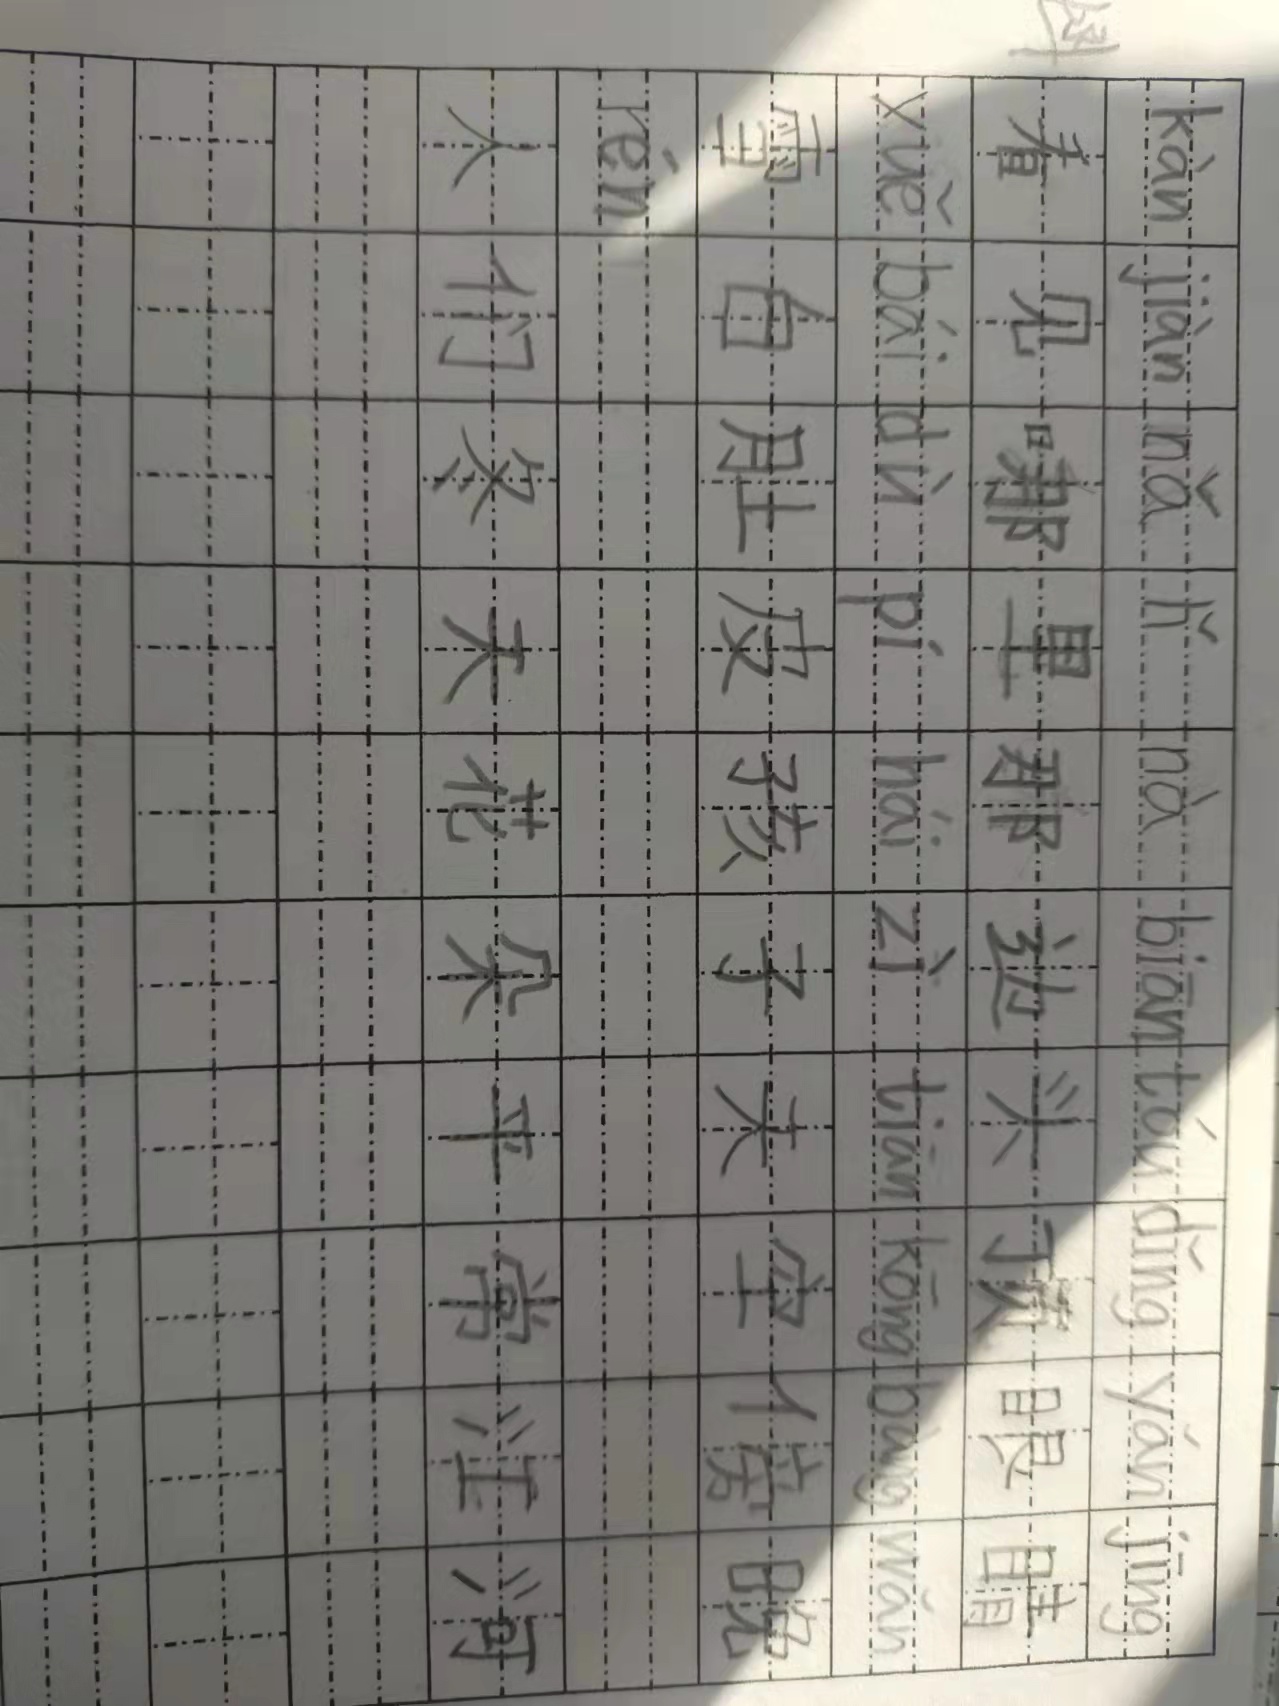 kàn jiàn nǎ lǐ nà biān tóu dǐng yǎn jīng
看见哪里那边头顶眼睛
xuě bái dù pí hái zi tiān kōng bàng wǎn
雪白肚皮孩子天空傍晚
rén
人们冬天花朵平常江河